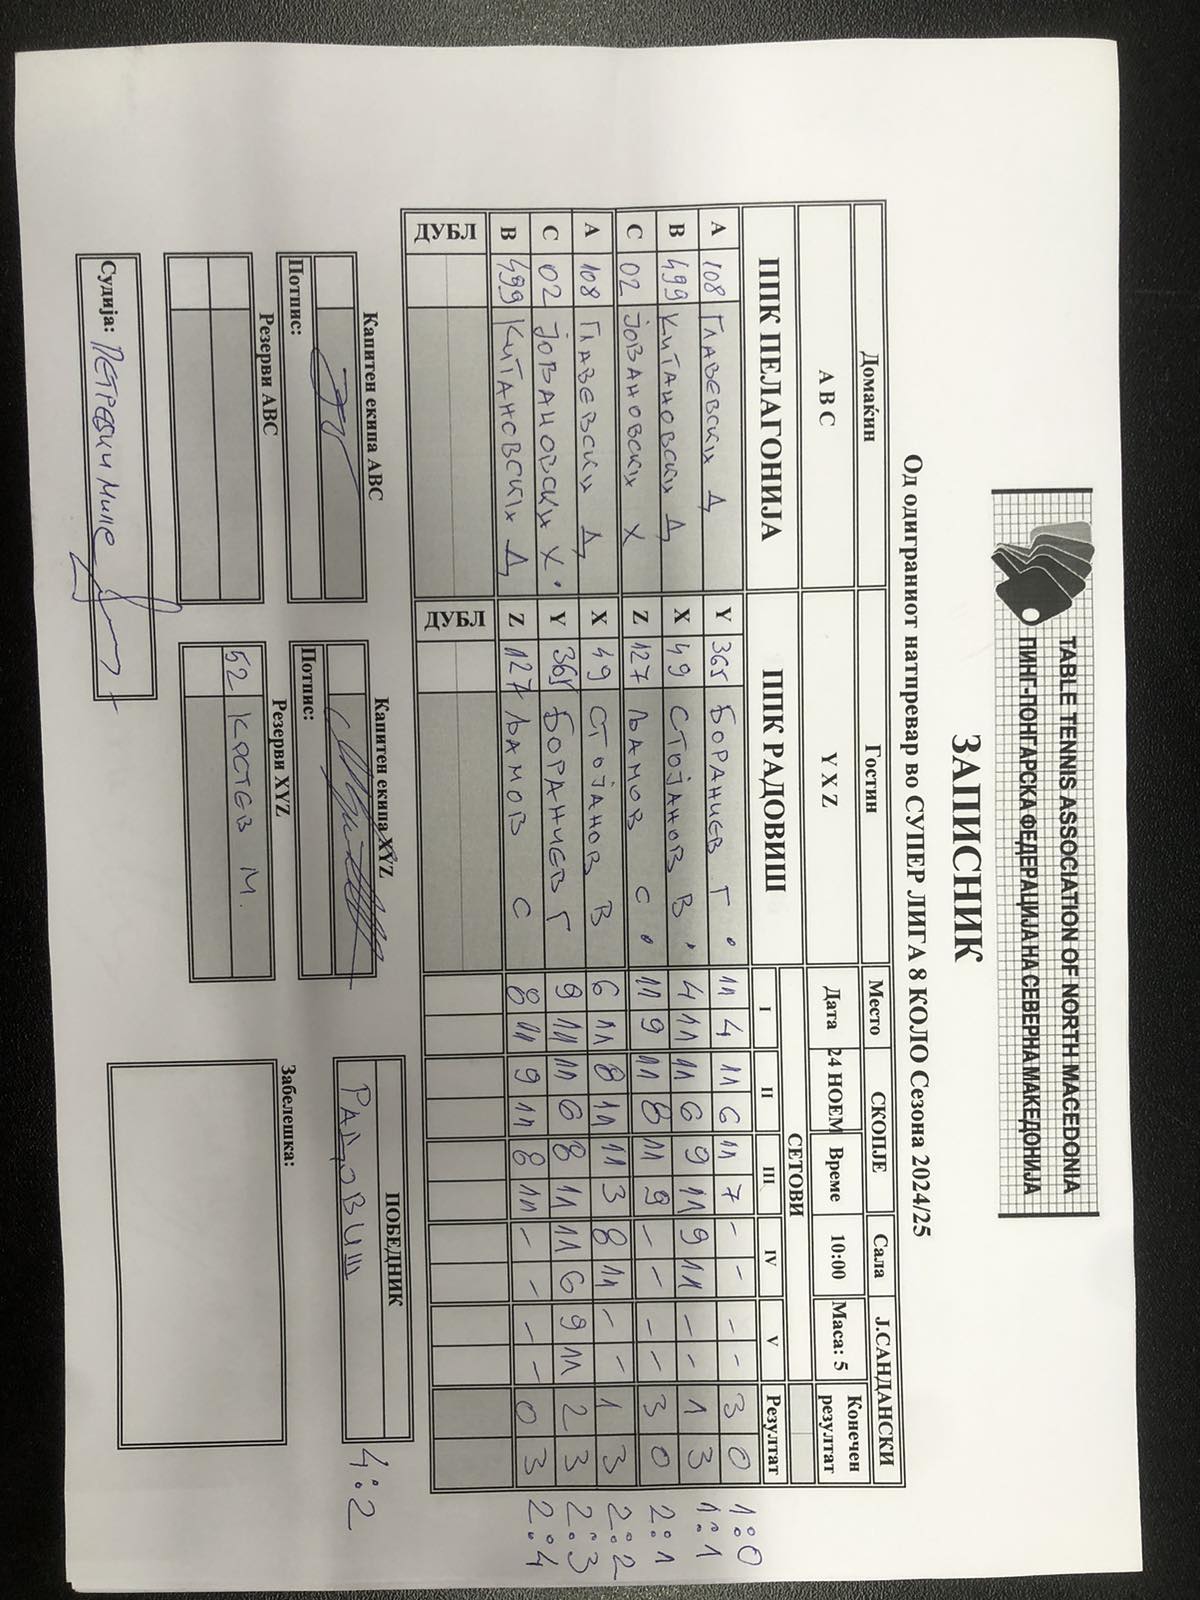 TABLE TENNIS ASSOCIATION OF NORTH MACEDONIA
ПИНГ-ПОНГАРСКА ФЕДЕРАЦИЈА НА СЕВЕРНА МАКЕДОНИЈА
ЗАПИСНИК
Од одиграниот натпревар во СУПЕР ЛИГА 8 КОЛО Сезона 2024/25
Домаќин Гостин Место СКОПЈЕ Сала Ј.САНДАНСКИ
A B C Y X Z Дата 24 НОЕМ Време 10:00 Маса: 5 Конечен резултат
ППК ПЕЛАГОНИЈА ППК РАДОВИШ СЕТОВИ
I II III IV V Резултат
A 108 ГЛАВЕВСКИ Д Y 365 БОРАНИЕВ Г. 11 4 11 6 11 7 - - - - 3 0 1:0
B 499 КИТАНОВСКИ Д X 49 СТОЈАНОВ В. 4 11 11 6 9 11 9 11 - - 1 3 1:1
C 02 ЈОВАНОВСКИ Х Z 127 ЉАМОВ С. 11 9 11 8 11 9 - - - - 3 0 2:1
A 108 ГЛАВЕВСКИ Д X 49 СТОЈАНОВ В 6 11 8 11 11 3 8 11 - - 1 3 2:2
C 02 ЈОВАНОВСКИ Х. Y 365 БОРАНИЕВ Г 9 11 11 6 8 11 11 6 9 11 2 3 2:3
B 499 КИТАНОВСКИ Д Z 127 ЉАМОВ С 8 11 9 11 8 11 - - - - 0 3 2:4
ДУБЛ ДУБЛ
Капитен екипа ABC Капитен екипа XYZ ПОБЕДНИК
Потпис: Потпис: РАДОВИШ 4:2
Резерви ABC Резерви XYZ Забелешка:
52 КРСТЕВ М.
Судија: ПЕТРЕВСКИ Миле